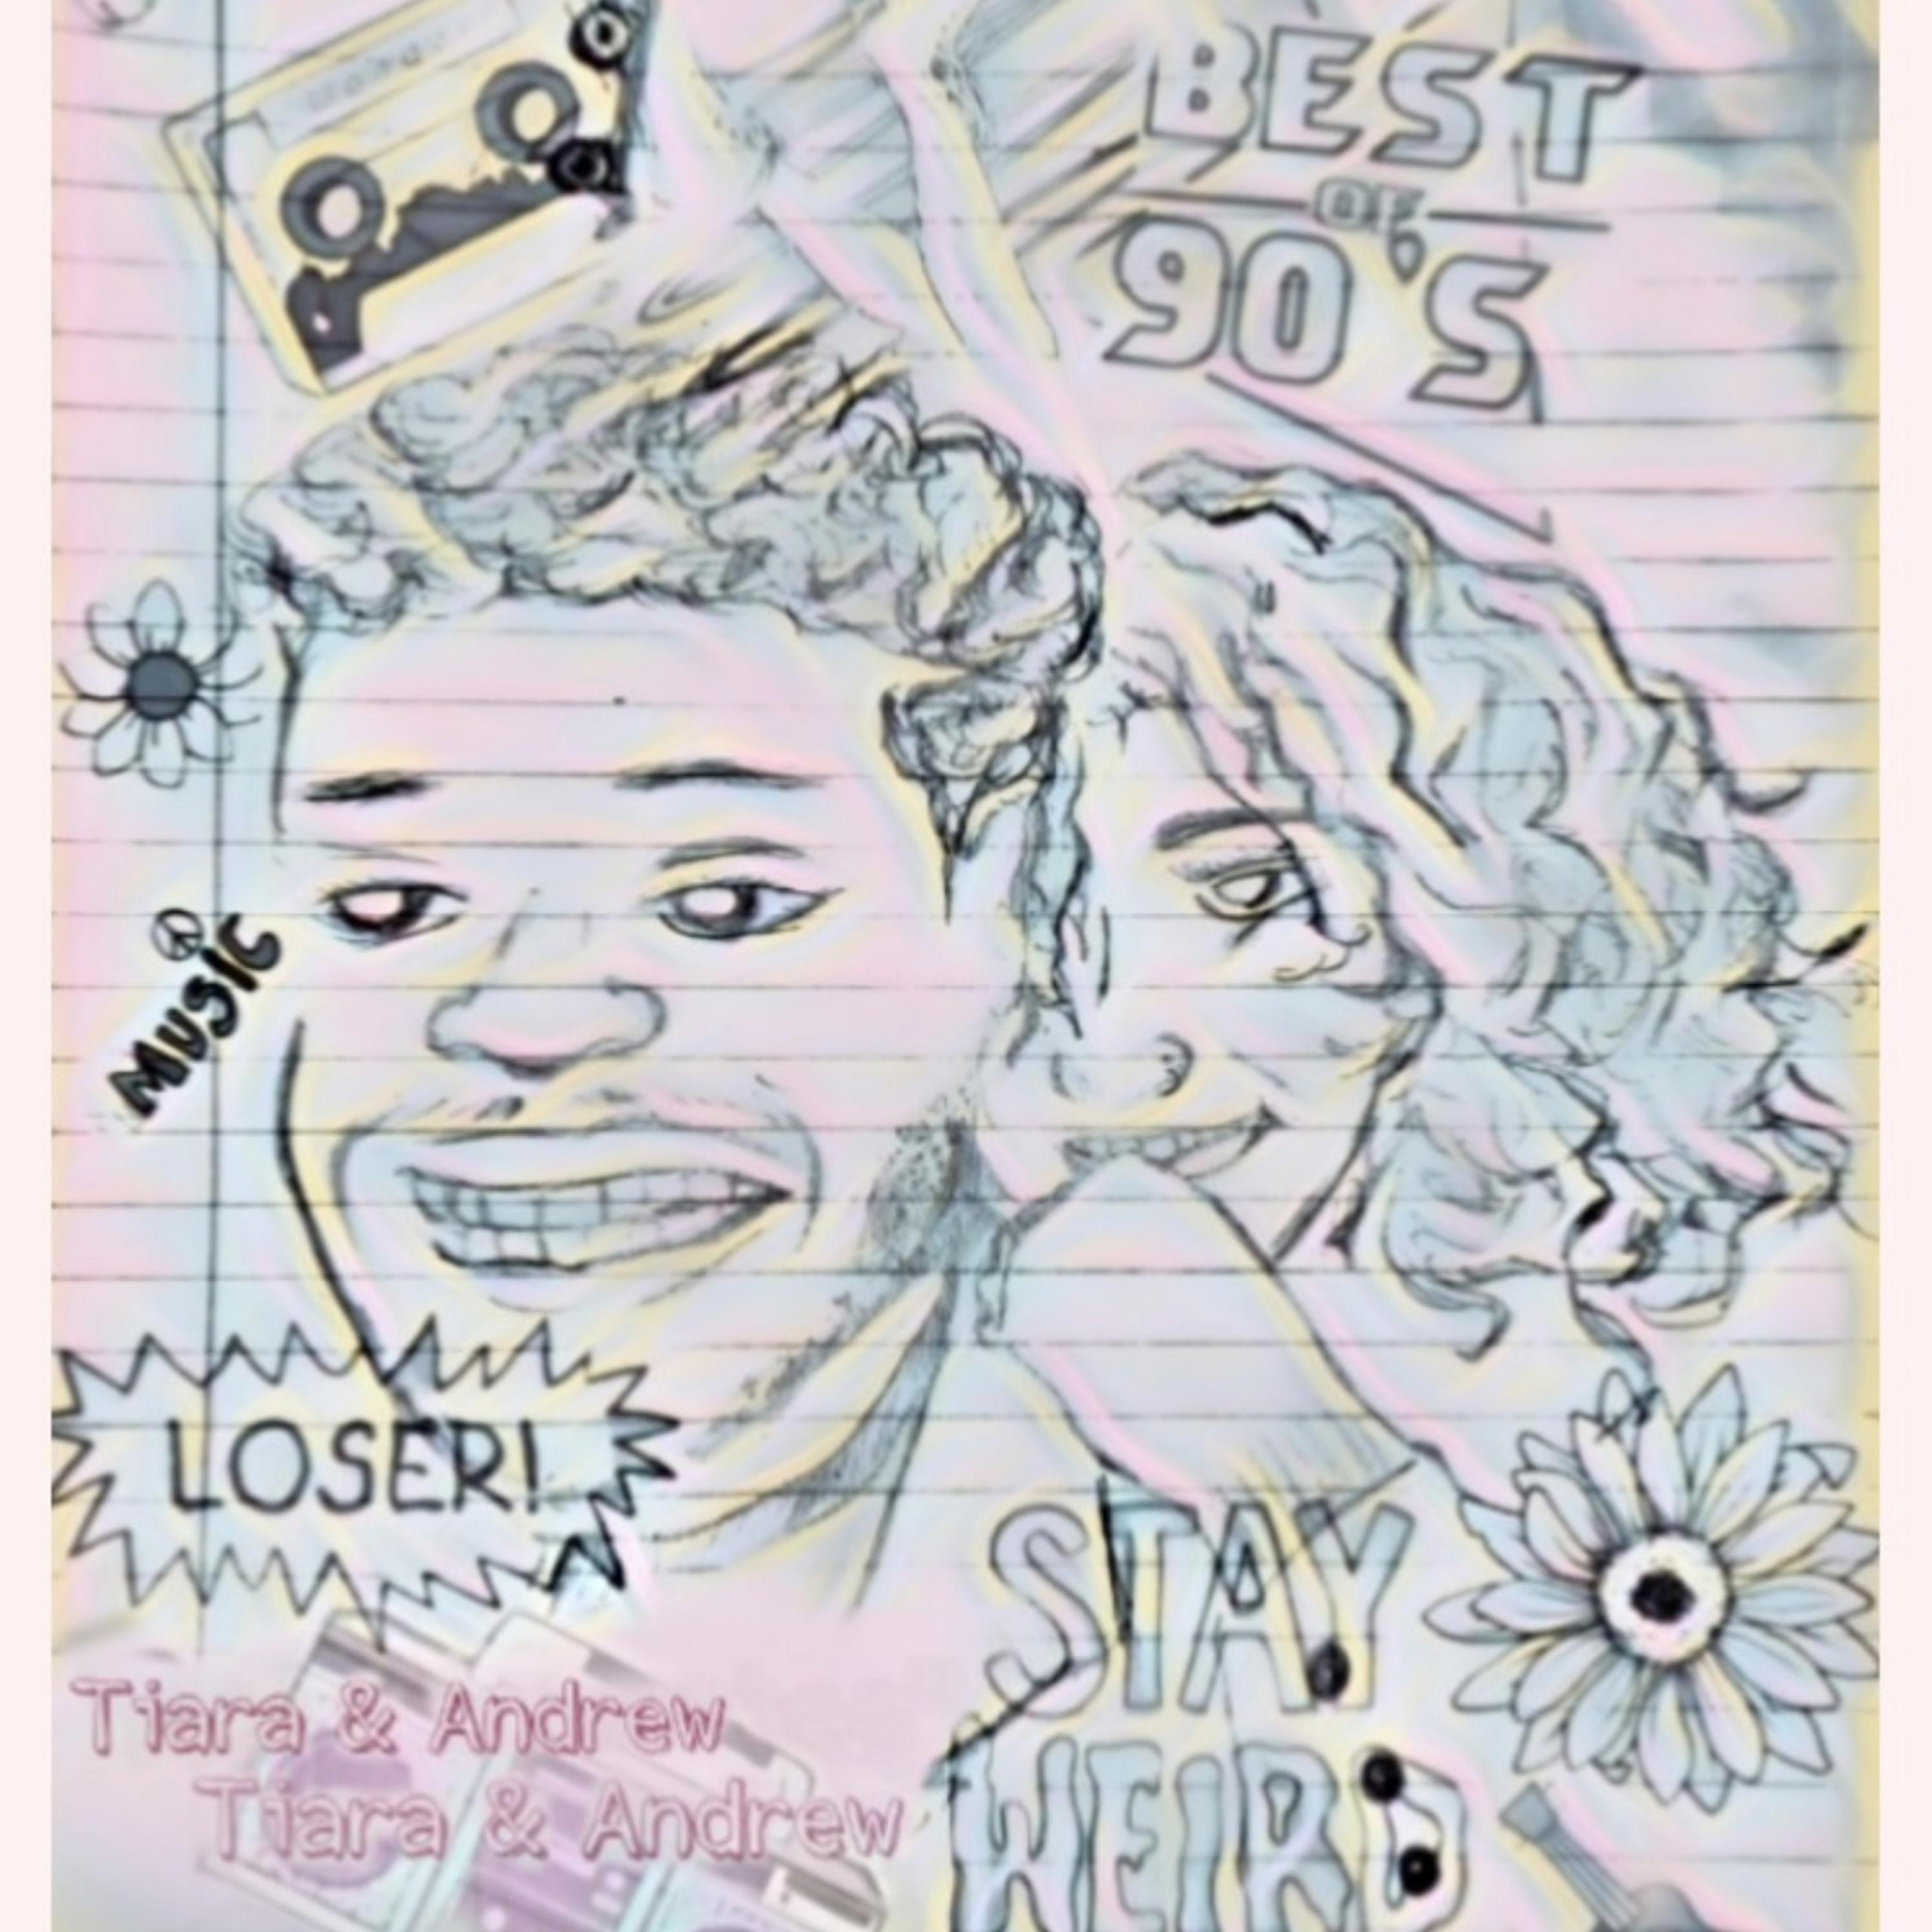 BEST
OF
90'S
MUSIC
LOSER!
STAY
WEIRD
Tiara & Andrew
Tiara & Andrew